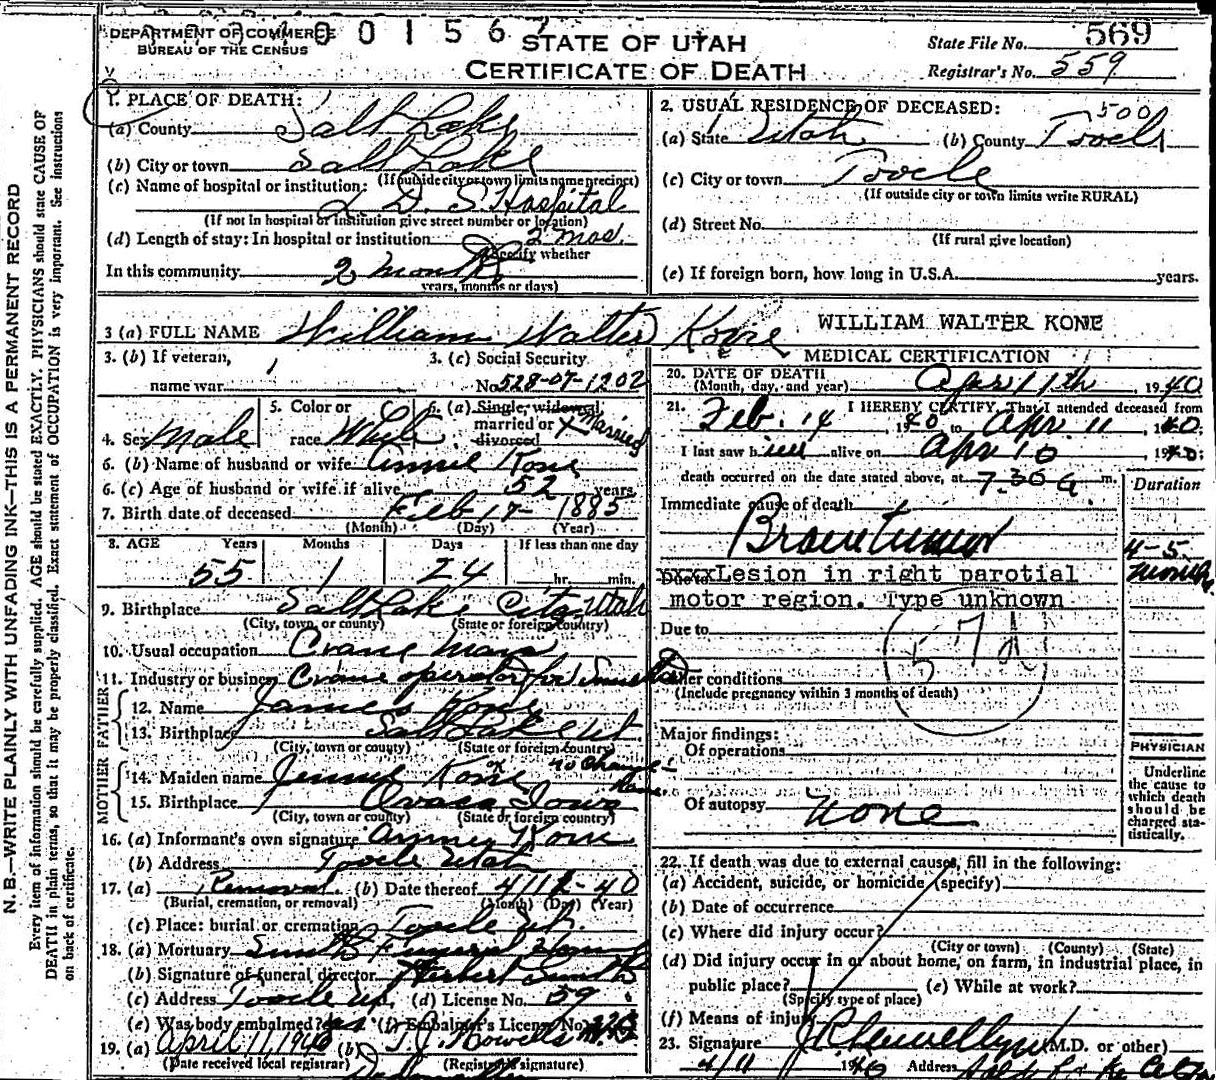 DEPARTMENT OF COMMERCE
BUREAU OF THE CENSUS
0 0 1 5 6
STATE OF UTAH
CERTIFICATE OF DEATH
State File No. 569
Registrar's No. 559
N. B.—WRITE PLAINLY WITH UNFADING INK—THIS IS A PERMANENT RECORD
Every item of information should be carefully supplied. AGE should be stated EXACTLY. PHYSICIANS should state CAUSE OF
DEATH in plain terms, so that it may be properly classified. Exact statement of OCCUPATION is very important. See instructions
on back of certificate.
1. PLACE OF DEATH:
(a) County Salt Lake
(b) City or town Salt Lake
(If outside city or town limits name precinct)
(c) Name of hospital or institution:
L D. S Hospital
(If not in hospital or institution give street number or location)
(d) Length of stay: In hospital or institution 2 mos.
(Specify whether
In this community 2 months
years, months or days)
2. USUAL RESIDENCE OF DECEASED:
500
(a) State Utah (b) County Tooele
(c) City or town Tooele
(If outside city or town limits write RURAL)
(d) Street No.
(If rural give location)
(e) If foreign born, how long in U.S.A. years.
3 (a) FULL NAME William Walter Kone WILLIAM WALTER KONE
3. (b) If veteran,
name war
3. (c) Social Security
No. 528-07-1202
4. Sex Male
5. Color or
race White
6. (a) Single, widowed,
married or
divorced
Married
6. (b) Name of husband or wife Annie Kone
6. (c) Age of husband or wife if alive 52 years
7. Birth date of deceased Feb 17- 1885
(Month) (Day) (Year)
8. AGE Years Months Days If less than one day
55 1 24 hr. min.
9. Birthplace Salt Lake City Utah
(City, town, or county) (State or foreign country)
10. Usual occupation Crane Man
11. Industry or business Crane operator for Smelter
FATHER
12. Name James Kone
13. Birthplace Salt Lake Ut
(City, town or county) (State or foreign country)
MOTHER
14. Maiden name Jennie Kone no change name
15. Birthplace Iowa
(City, town or county) (State or foreign country)
16. (a) Informant's own signature Kone
(b) Address Tooele Utah
17. (a) Removal (b) Date thereof 4/12-40
(Burial, cremation, or removal) (Month) (Day) (Year)
(c) Place: burial or cremation Tooele Ut.
18. (a) Mortuary Smith Funeral Home
(b) Signature of funeral director Herbert Smith
(c) Address Tooele Ut, (d) License No. 59
(e) Was body embalmed? yes (f) Embalmer's License No.
19. (a) April 11, 1940 (b) T. J. Howells
(Date received local registrar) (Registrar's signature)
MEDICAL CERTIFICATION
20. DATE OF DEATH
(Month, day, and year) April 11th, 1940
21. I HEREBY CERTIFY, That I attended deceased from
Feb. 14, 1940 to Apr 11, 1940;
I last saw him alive on Apr 10, 1940;
death occurred on the date stated above, at 7.30 a m.
Duration
Immediate cause of death
Brain tumor
4-5 months
Due to Lesion in right parotial
motor region. Type unknown
Due to
57d
Other conditions
(Include pregnancy within 3 months of death)
Major findings:
Of operations
Of autopsy none
PHYSICIAN
Underline
the cause to
which death
should be
charged sta-
tistically.
22. If death was due to external causes, fill in the following:
(a) Accident, suicide, or homicide (specify)
(b) Date of occurrence
(c) Where did injury occur?
(City or town) (County) (State)
(d) Did injury occur in or about home, on farm, in industrial place, in
public place? (e) While at work?
(Specify type of place)
(f) Means of injury
23. Signature Llewellyn (M.D. or other)
4/11 1940 Address Salt Lake City